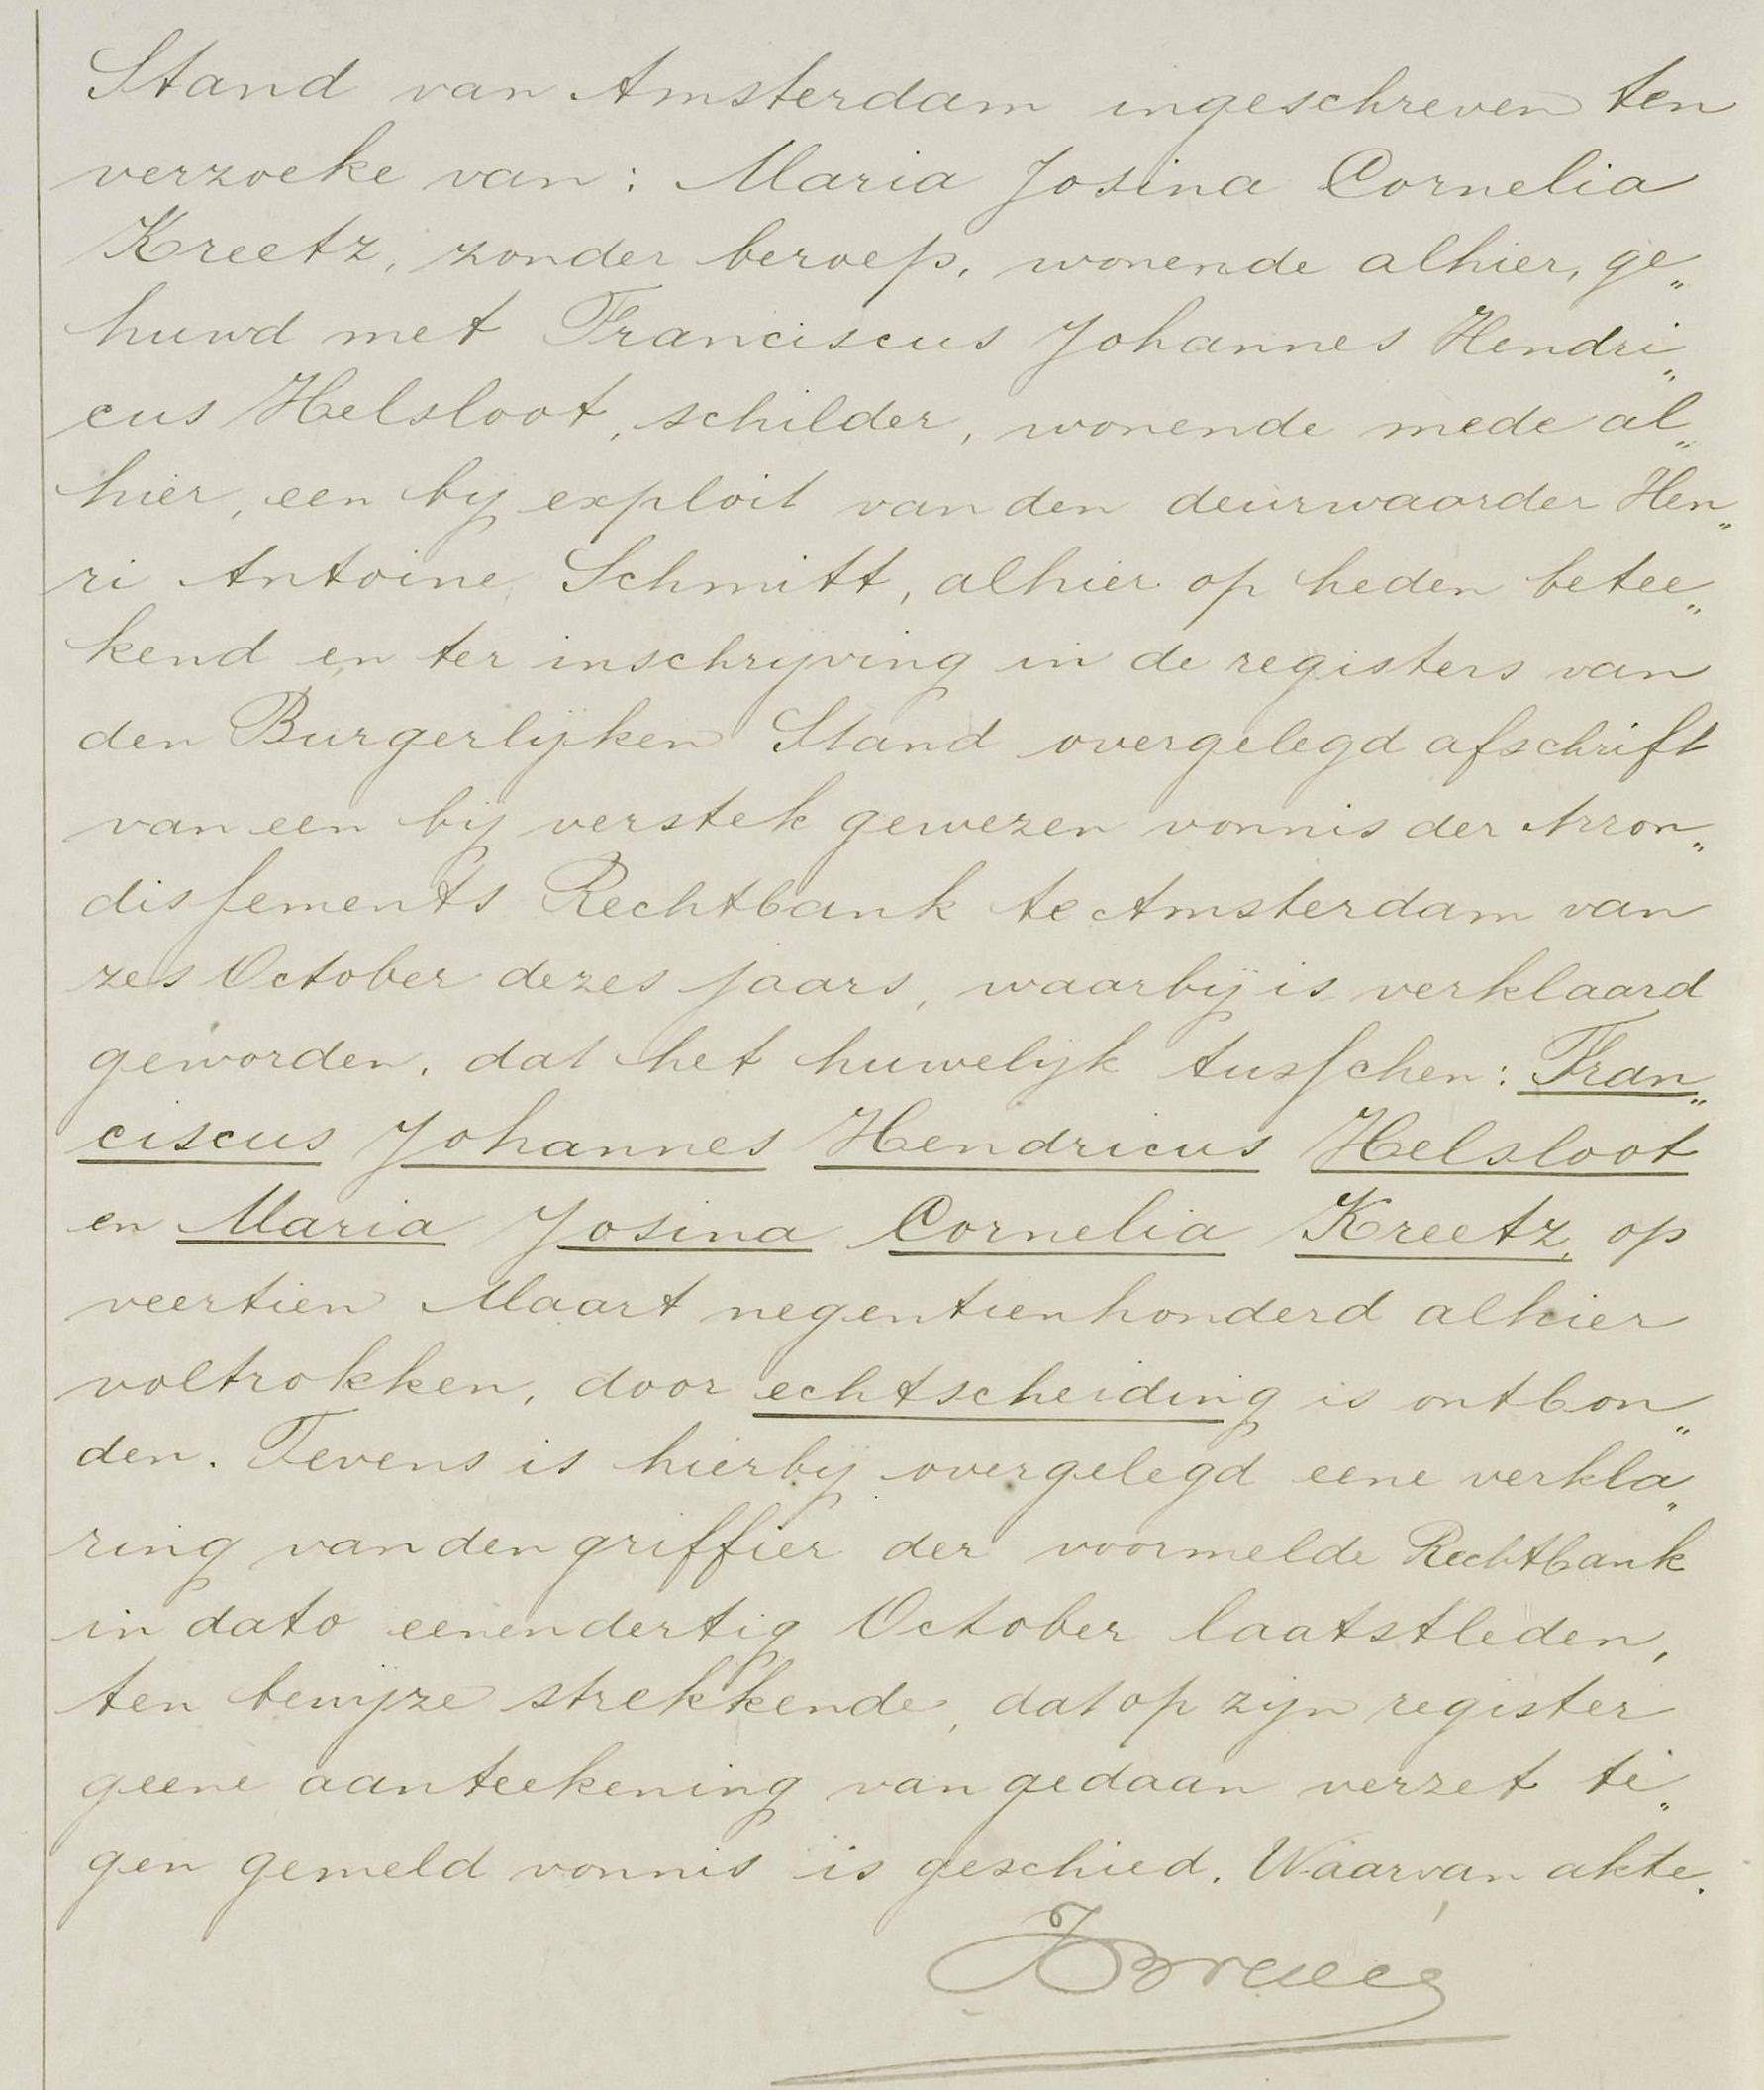 Stand van Amsterdam ingeschreven ten
verzoeke van: Maria Josina Cornelia
Kreetz, zonder beroep, wonende alhier, ge„
huwd met Franciscus Johannes Hendri„
cus Helsloot, schilder, wonende mede al„
hier, een by exploit van den deurwaarder Hen„
ri Antoine Schmitt, alhier op heden betee„
kend en ter inschrijving in de registers van
den Burgerlijken Stand overgelegd afschrift
van een bij verstek gewezen vonnis der Arron„
dissements Rechtbank te Amsterdam van
zes October dezes jaars, waarbij is verklaard
geworden, dat het huwelijk tusschen: Fran„
ciscus Johannes Hendricus Helsloot
en Maria Josina Cornelia Kreetz, op
veertien Maart negentienhonderd alhier
voltrokken, door echtscheiding is ontbon„
den. Tevens is hierbij overgelegd eene verkla„
ring van den griffier der voormelde Rechtbank
in dato eenendertig October laatstleden,
ten bewijze strekkende, dat op zijn register
geene aanteekening van gedaan verzet te„
gen gemeld vonnis is geschied. Waarvan akte.